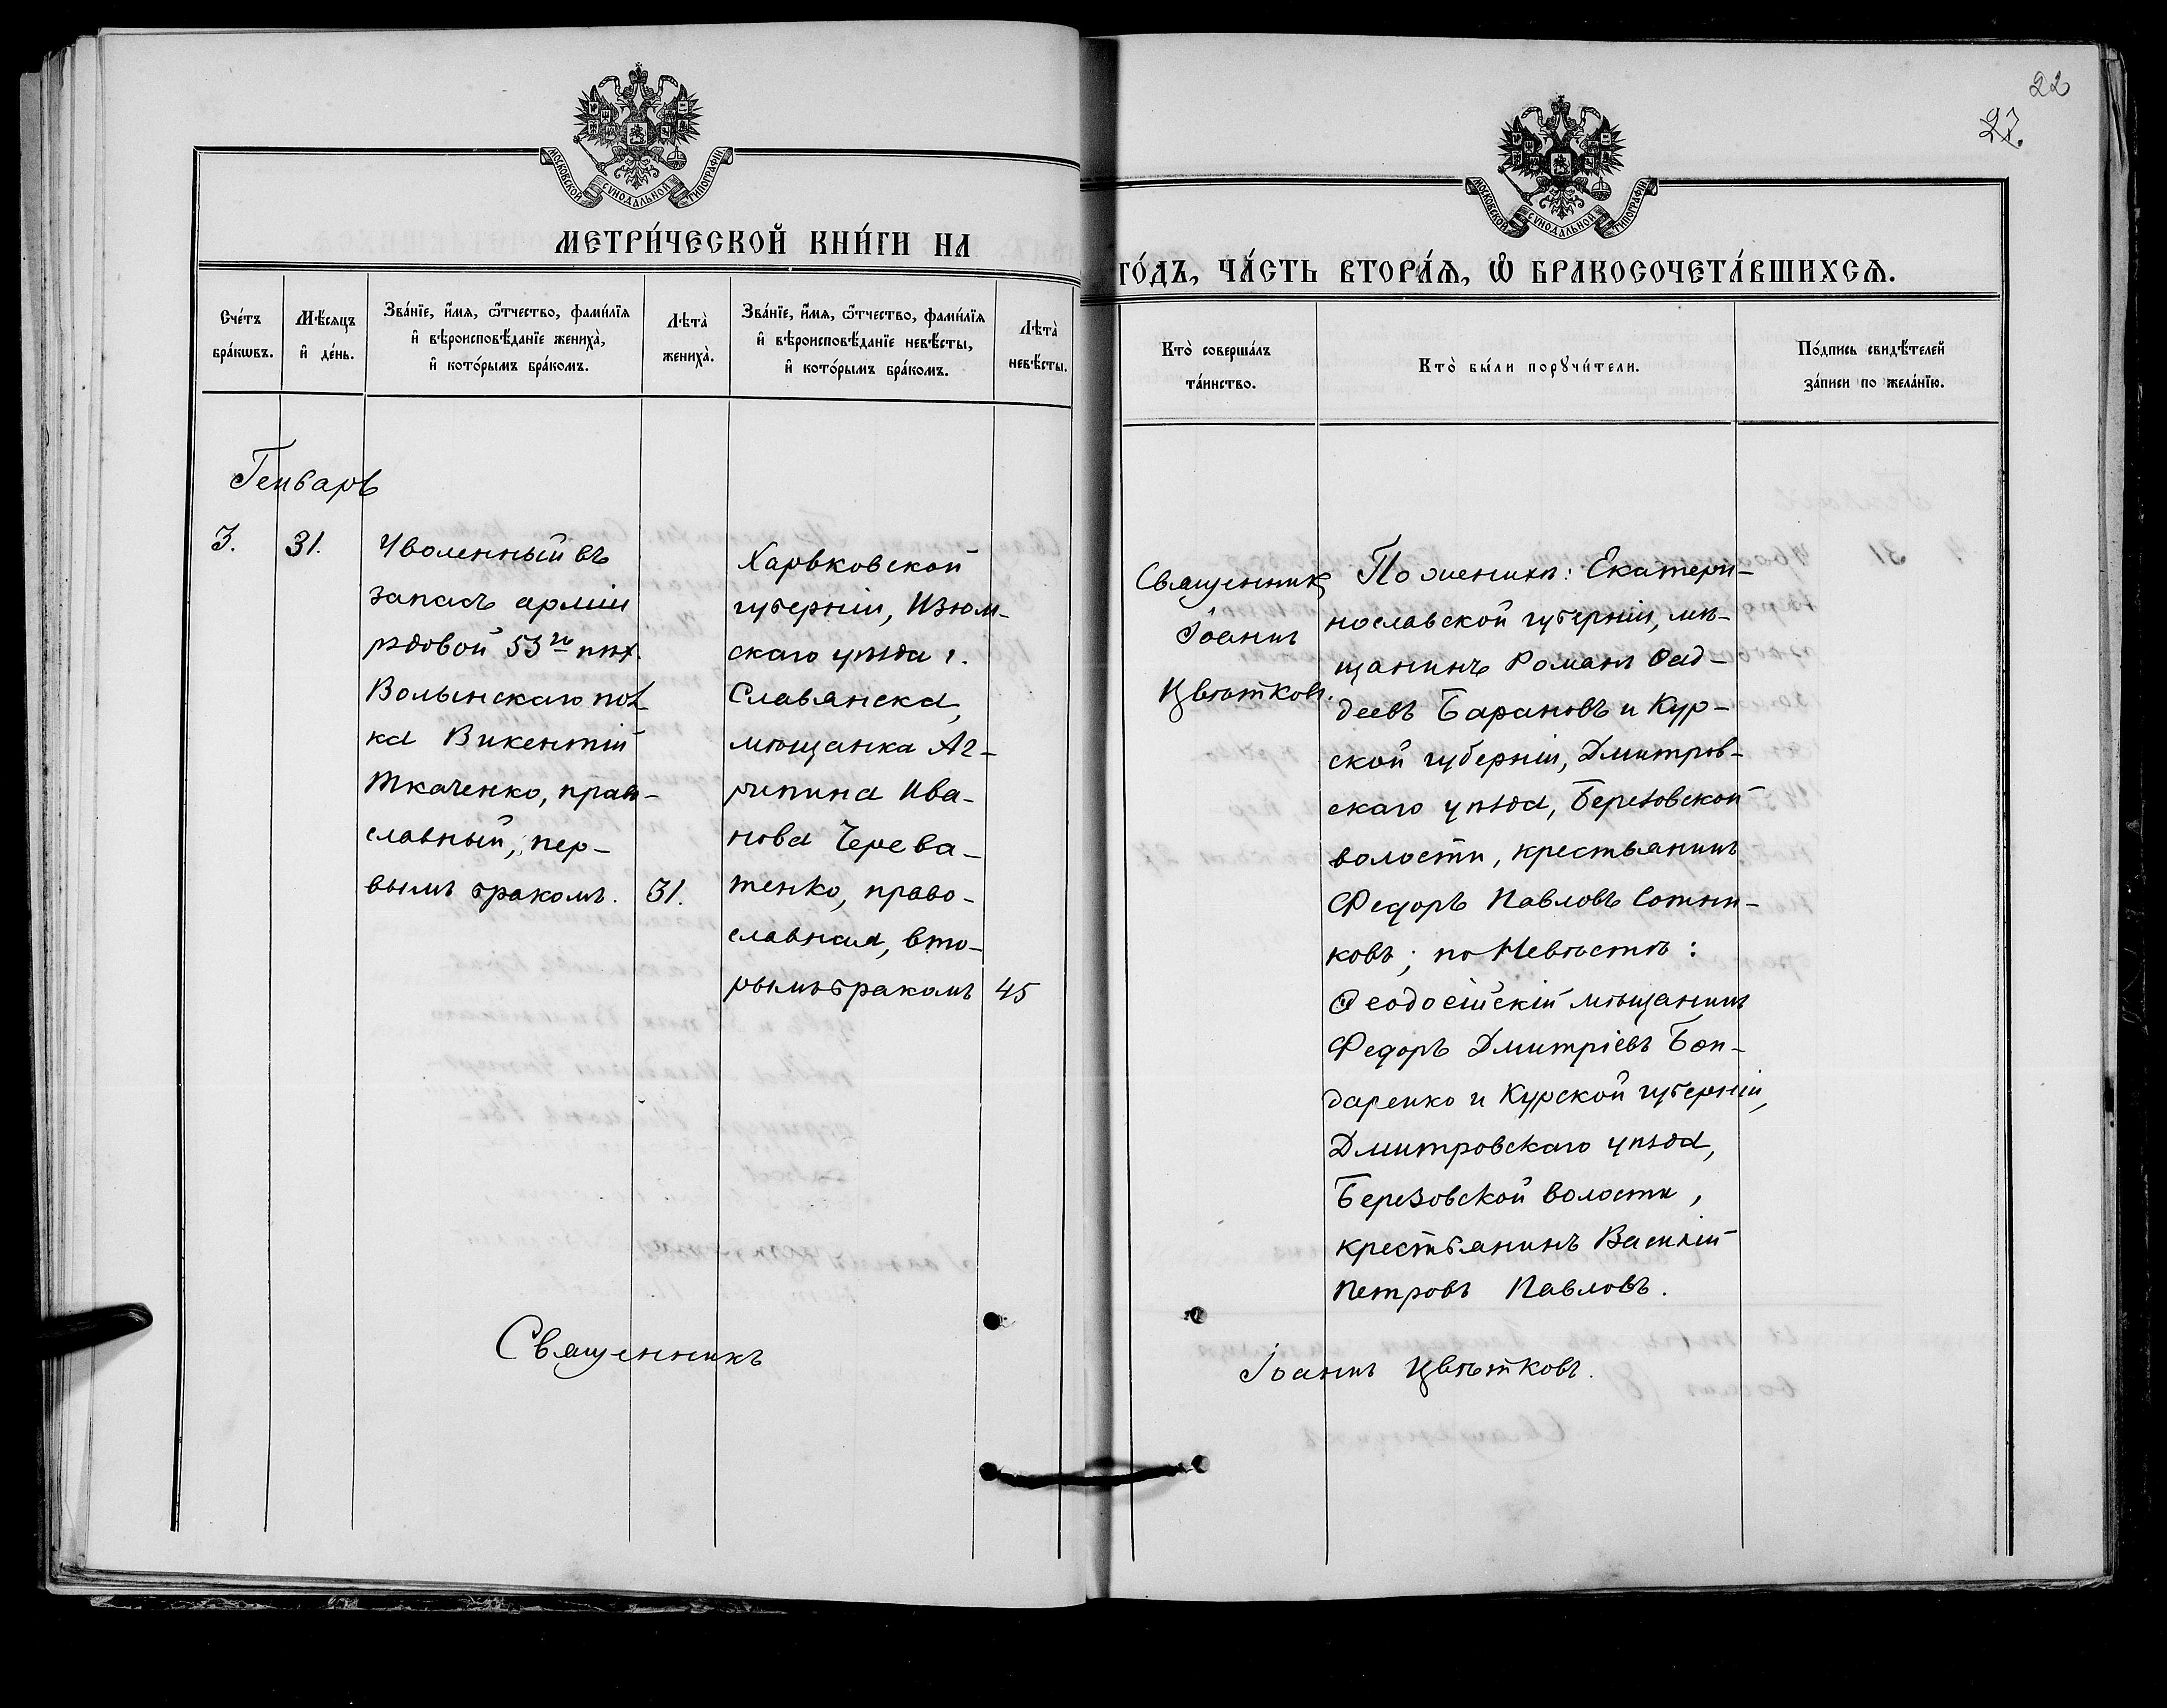 22
27.
МОСКОВСКОЙ СѴНОДАЛЬНОЙ ТИПОГРАФІИ
МОСКОВСКОЙ СѴНОДАЛЬНОЙ ТИПОГРАФІИ
МЕТРИ́ЧЕСКОЙ КНИ́ГИ НА
ГО́ДЪ, ЧА́СТЬ ВТОРА́Ѧ, Ѽ БРАКОСОЧЕТА́ВШИХСѦ.
Сче́тъ
бра́кѡвъ.
Мѣ́сяцъ
и҆ де́нь.
Зва́нїе, и҆́мя, ѻ҆́тчество, фами́лїя
и҆ вѣроисповѣ́данїе жениха̀,
и҆ кото́рымъ бра́комъ.
Лѣта̀
жениха̀.
Зва́нїе, и҆́мя, ѻ҆́тчество, фами́лїя
и҆ вѣроисповѣ́данїе невѣ́сты,
и҆ кото́рымъ бра́комъ.
Лѣта̀
невѣ́сты.
Кто̀ соверша́лъ
та́инство.
Кто̀ бы́ли порꙋчи́тели.
По́дпись свидѣ́телей
за́писи по жела́нїю.
Генварь
3.
31.
Уволенный въ
запасъ арміи
рядовой 53го пѣх.
Волынскаго пол-
ка Викентій
Ткаченко, право-
славный, пер-
вымъ бракомъ.
31.
Харьковской
губерніи, Изюм-
скаго уѣзда г.
Славянска,
мѣщанка Аг-
рипина Ива-
нова Черева-
тенко, право-
славная, вто-
рымъ бракомъ
45
Священникъ
Іоаннъ
Цвѣтковъ.
По женихѣ: Екатери-
нославской губерніи, мѣ-
щанинъ Романъ Фад-
деевъ Барановъ и Кур-
ской губерніи, Дмитров-
скаго уѣзда, Березовской
волости, крестьянинъ
Федоръ Павловъ Сотни-
ковъ; по Невѣстѣ:
Ѳеодосійскій мѣщанинъ
Федоръ Дмитріевъ Бон-
даренко и Курской губерніи,
Дмитровскаго уѣзда,
Березовской волости,
крестьянинъ Василій
Петровъ Павловъ.
Священникъ
Іоаннъ Цвѣтковъ.